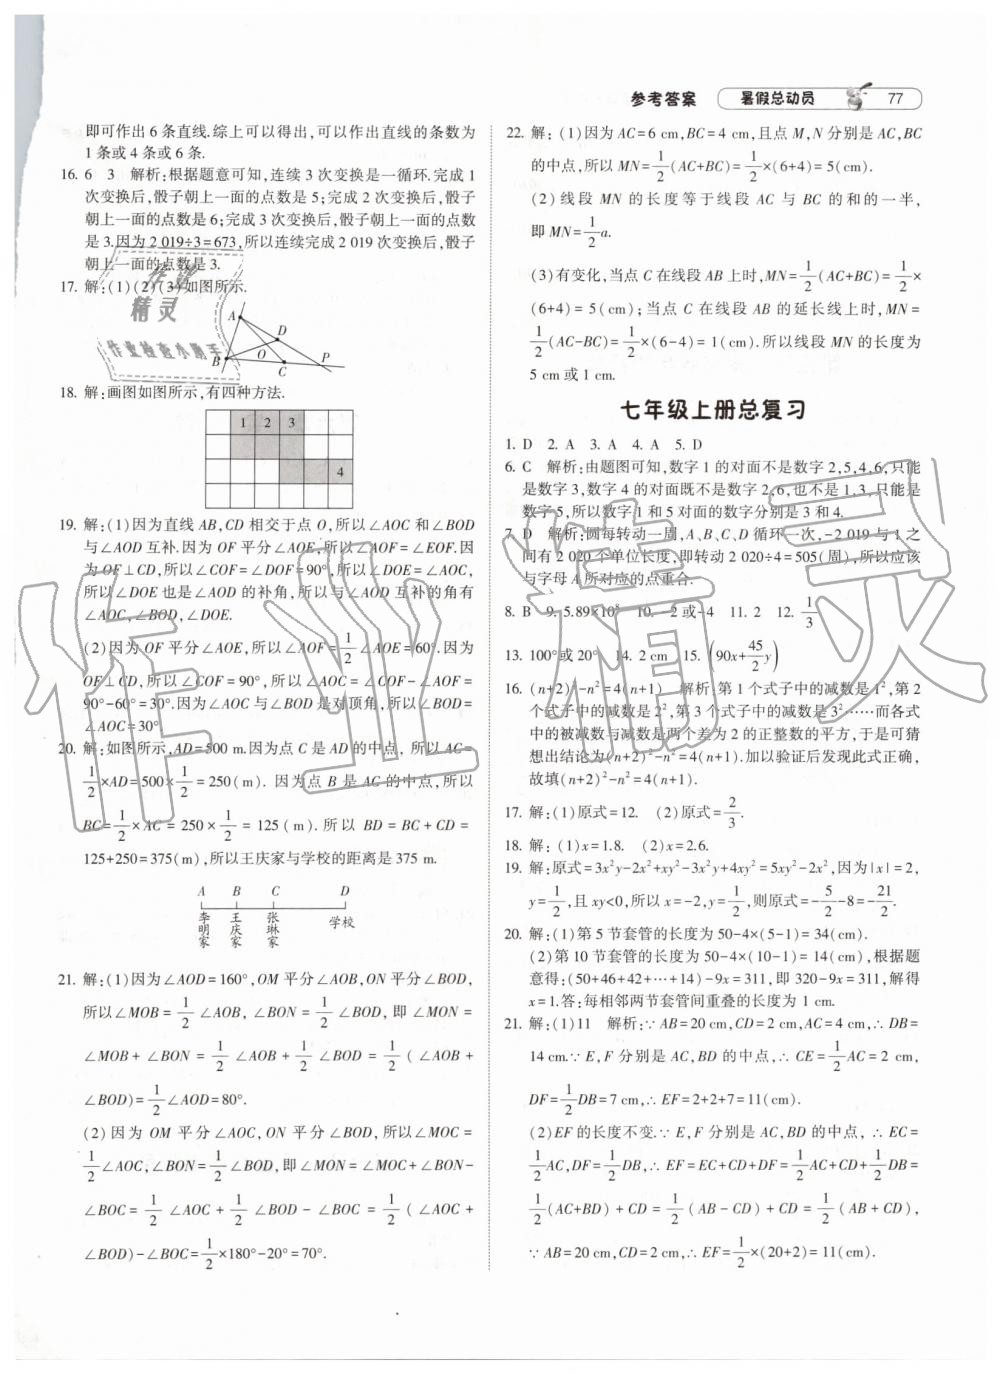 参考答案 暑假总动员 77
即可作出 6 条直线.综上可以得出,可以作出直线的条数为
1 条或 4 条或 6 条.
16. 6 3 解析:根据题意可知,连续 3 次变换是一循环.完成 1
次变换后,骰子朝上一面的点数是 5;完成 2 次变换后,骰子
朝上一面的点数是 6;完成 3 次变换后,骰子朝上一面的点数
是 3.因为 2 019÷3=673,所以连续完成 2 019 次变换后,骰子
朝上一面的点数是 3.
17. 解:(1)(2)(3)如图所示.
A
D
B
O
C
P
18. 解:画图如图所示,有四种方法.
1 2 3
4
19. 解:(1)因为直线 AB,CD 相交于点 O,所以∠AOC 和∠BOD
与∠AOD 互补.因为 OF 平分∠AOE,所以∠AOF=∠EOF.因
为 OF⊥CD,所以∠COF=∠DOF=90°,所以∠DOE=∠AOC,
所以∠DOE 也是∠AOD 的补角,所以与∠AOD 互补的角有
∠AOC,∠BOD,∠DOE.
(2)因为 OF 平分∠AOE,所以∠AOF=1/2∠AOE=60°.因为
OF⊥CD,所以∠COF=90°,所以∠AOC=∠COF-∠AOF=
90°-60°=30°.因为∠AOC 与∠BOD 是对顶角,所以∠BOD=
∠AOC=30°
20. 解:如图所示,AD=500 m.因为点 C 是 AD 的中点, 所以 AC=
1/2×AD=500×1/2=250(m). 因为点 B 是 AC 的中点,所以
BC=1/2×AC=250×1/2=125(m).所以 BD=BC+CD=
125+250=375(m),所以王庆家与学校的距离是 375 m.
A B C D
李明家 王庆家 张琳家 学校
21. 解:(1)因为∠AOD=160°,OM 平分∠AOB,ON 平分∠BOD,
所以∠MOB=1/2∠AOB,∠BON=1/2∠BOD,即∠MON=
∠MOB+∠BON=1/2∠AOB+1/2∠BOD=1/2(∠AOB+
∠BOD)=1/2∠AOD=80°.
(2)因为 OM 平分∠AOC,ON 平分∠BOD,所以∠MOC=
1/2∠AOC,∠BON=1/2∠BOD,即∠MON=∠MOC+∠BON-
∠BOC=1/2∠AOC+1/2∠BOD-∠BOC=1/2(∠AOC+
∠BOD)-∠BOC=1/2×180°-20°=70°.
22. 解:(1)因为 AC=6 cm,BC=4 cm,且点 M,N 分别是 AC,BC
的中点,所以 MN=1/2(AC+BC)=1/2×(6+4)=5(cm).
(2)线段 MN 的长度等于线段 AC 与 BC 的和的一半,
即 MN=1/2a.
(3)有变化,当点 C 在线段 AB 上时,MN=1/2(AC+BC)=1/2×
(6+4)=5(cm);当点 C 在线段 AB 的延长线上时,MN=
1/2(AC-BC)=1/2×(6-4)=1(cm).所以线段 MN 的长度为
5 cm 或 1 cm.
七年级上册总复习
1. D 2. A 3. A 4. A 5. D
6. C 解析:由题图可知,数字 1 的对面不是数字 2,5,4,6,只能
是数字 3,数字 4 的对面既不是数字 2,6,也不是 1,3,只能是
数字 5,所以数字 1 和 5 对面的数字分别是 3 和 4.
7. D 解析:圆每转动一周,A、B、C、D 循环一次,-2 019 与 1 之
间有 2 020 个单位长度,即转动 2 020÷4=505(周),所以应该
与字母 A 所对应的点重合.
8. B 9. 5.89×10⁸ 10. -2 或-4 11. 2 12. 1/3
13. 100°或 20° 14. 2 cm 15. (90x+45/2y)
16. (n+2)²-n²=4(n+1) 解析:第 1 个式子中的减数是 1²,第 2
个式子中的减数是 2²,第 3 个式子中的减数是 3²……而各式
中的被减数与减数是两个差为 2 的正整数的平方,于是可猜
想出结论为(n+2)²-n²=4(n+1).加以验证后发现此式正确,
故填(n+2)²-n²=4(n+1).
17. 解:(1)原式=12. (2)原式=2/3.
18. 解:(1)x=1.8. (2)x=2.6.
19. 解:原式=3x²y-2x²+xy²-3x²y+4xy²=5xy²-2x²,因为|x|=2,
y=1/2,且 xy<0,所以 x=-2,y=1/2,则原式=-5/2-8=-21/2.
20. 解:(1)第 5 节套管的长度为 50-4×(5-1)=34(cm).
(2)第 10 节套管的长度为 50-4×(10-1)=14(cm),根据题
意得:(50+46+42+…+14)-9x=311,即 320-9x=311,解得
x=1.答:每相邻两节套管间重叠的长度为 1 cm.
21. 解:(1)11 解析:∵AB=20 cm,CD=2 cm,AC=4 cm,∴DB=
14 cm.∵E,F 分别是 AC,BD 的中点,∴CE=1/2AC=2 cm,
DF=1/2DB=7 cm,∴EF=2+2+7=11(cm).
(2)EF 的长度不变.∵E,F 分别是 AC,BD 的中点,∴EC=
1/2AC,DF=1/2DB,∴EF=EC+CD+DF=1/2AC+CD+1/2DB=
1/2(AC+BD)+CD=1/2(AB-CD)+CD=1/2(AB+CD),
∵AB=20 cm,CD=2 cm,∴EF=1/2×(20+2)=11(cm).
作业
精灵
作业检查小助手
作业精灵